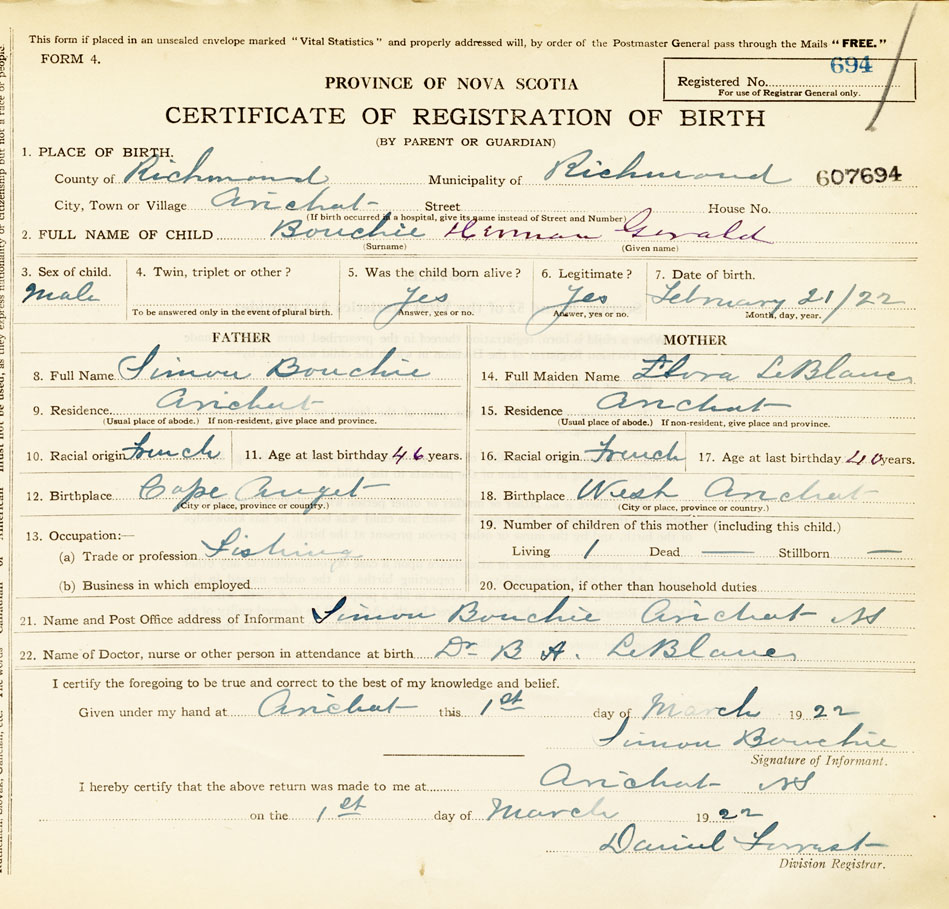 This form if placed in an unsealed envelope marked "Vital Statistics" and properly addressed will, by order of the Postmaster General pass through the Mails "FREE."
FORM 4.
694
Registered No.
For use of Registrar General only.
PROVINCE OF NOVA SCOTIA
CERTIFICATE OF REGISTRATION OF BIRTH
(BY PARENT OR GUARDIAN)
1. PLACE OF BIRTH.
County of Richmond Municipality of Richmond 607694
City, Town or Village Arichat Street House No.
(If birth occurred in a hospital, give its name instead of Street and Number)
2. FULL NAME OF CHILD Bouchie Herman Gerald
(Surname) (Given name)
3. Sex of child. 4. Twin, triplet or other? 5. Was the child born alive? 6. Legitimate? 7. Date of birth.
Male Yes Yes February 21/22
To be answered only in the event of plural birth. Answer, yes or no. Answer, yes or no. Month, day, year.
FATHER
8. Full Name Simon Bouchie
9. Residence Arichat
(Usual place of abode.) If non-resident, give place and province.
10. Racial origin French 11. Age at last birthday 46 years.
12. Birthplace Cape Auget
(City or place, province or country.)
13. Occupation:—
(a) Trade or profession Fishing
(b) Business in which employed
MOTHER
14. Full Maiden Name Flora LeBlanc
15. Residence Arichat
(Usual place of abode.) If non-resident, give place and province.
16. Racial origin French 17. Age at last birthday 40 years.
18. Birthplace West Arichat
(City or place, province or country.)
19. Number of children of this mother (including this child.)
Living 1 Dead — Stillborn —
20. Occupation, if other than household duties
21. Name and Post Office address of Informant Simon Bouchie Arichat NS
22. Name of Doctor, nurse or other person in attendance at birth Dr B A. LeBlanc
I certify the foregoing to be true and correct to the best of my knowledge and belief.
Given under my hand at Arichat this 1st day of March 1922
Simon Bouchie
Signature of Informant.
I hereby certify that the above return was made to me at Arichat NS
on the 1st day of March 1922
Daniel Forrest
Division Registrar.